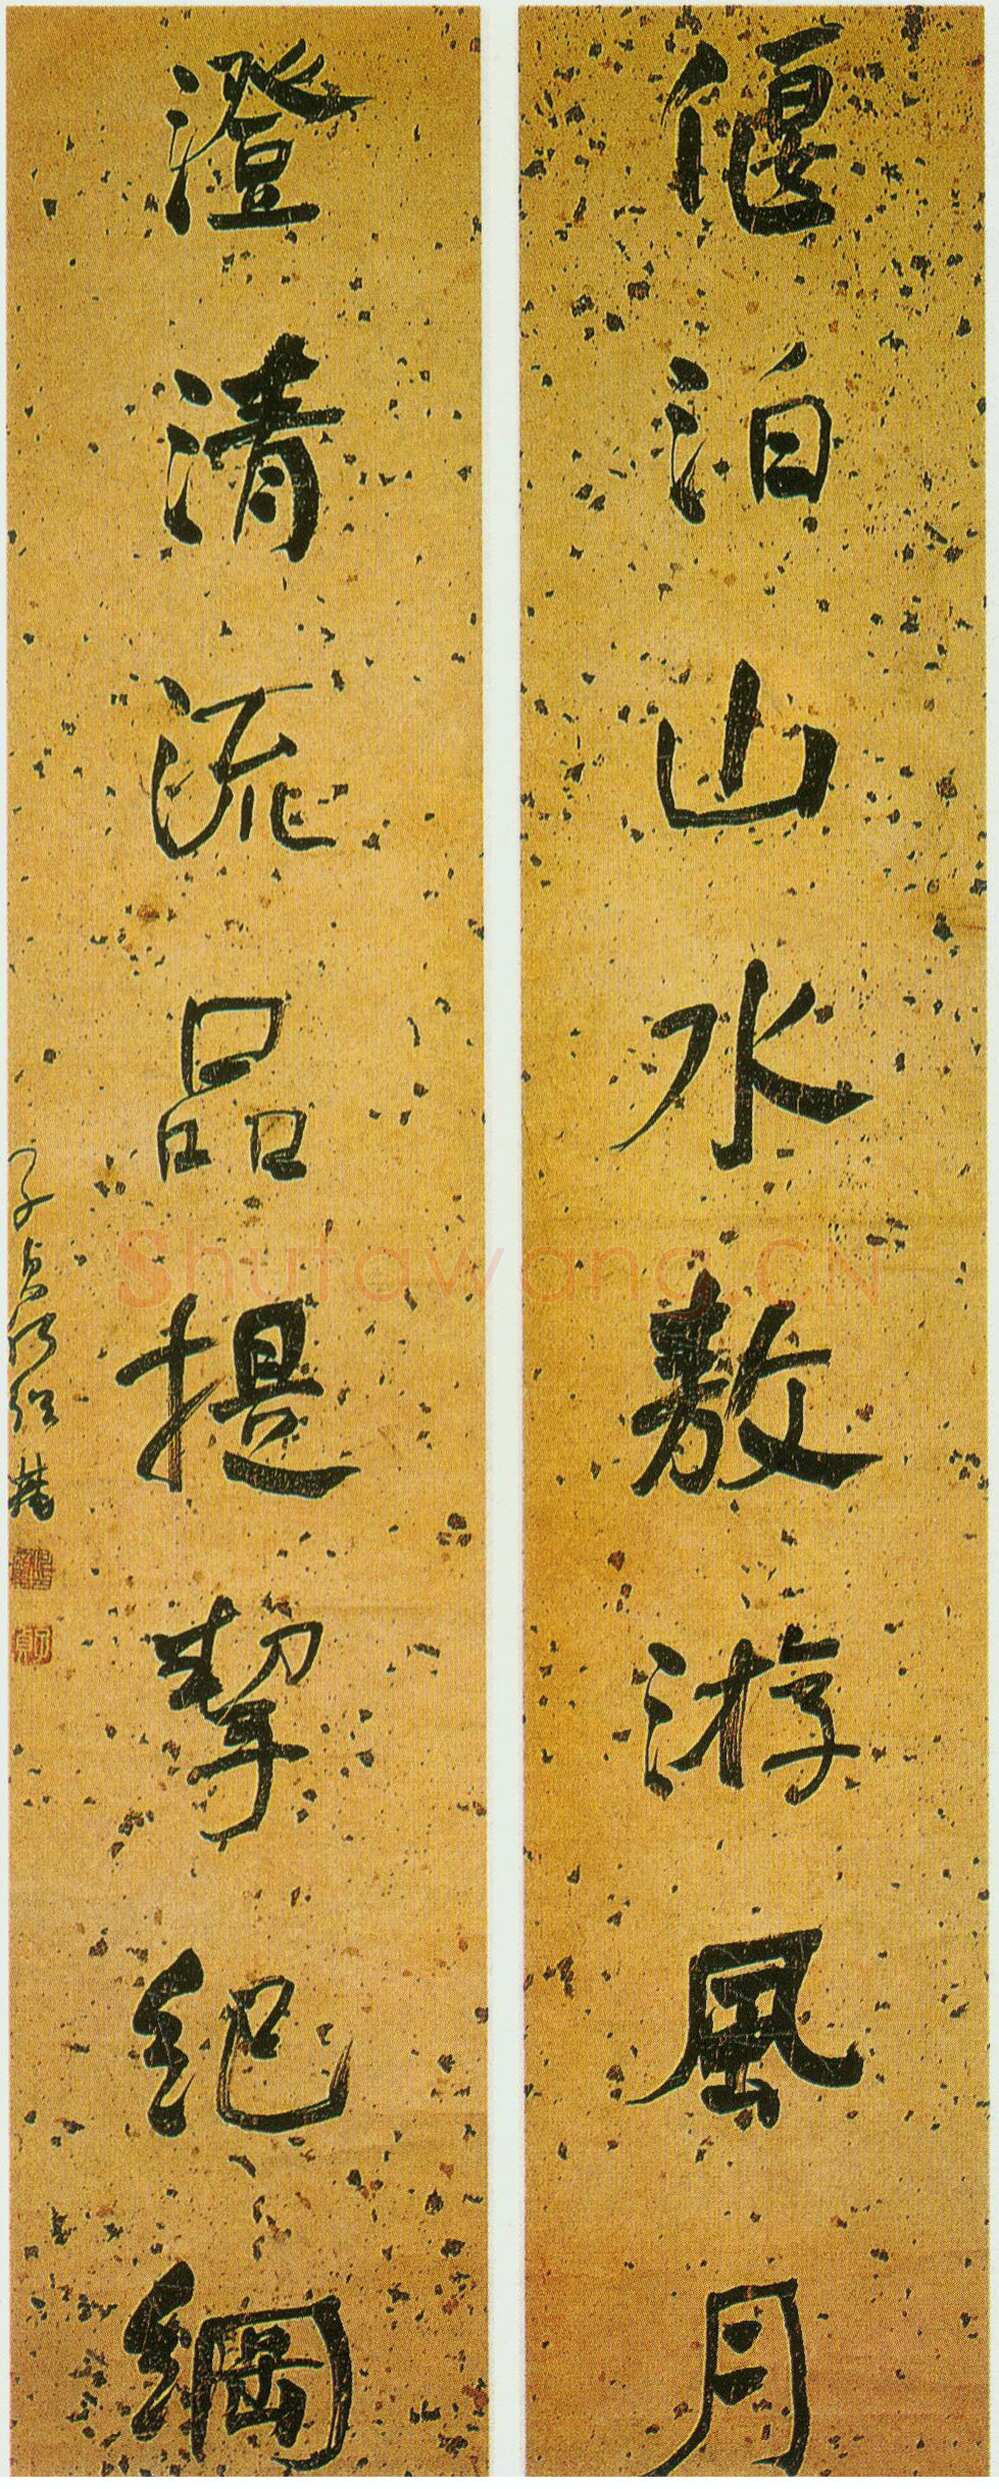 偃泊山水敖游風月
澄清流品提挈紀綱
子貞何紹基
Shufawang.CN